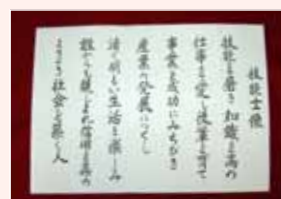 技能士像
技能を磨き 知識を高め
仕事を愛し後輩を育て
事業を成功にみちびき
産業の発展につくし
清く明るい生活を楽しみ
誰からも親しまれ信頼を高め
よりよき社会を築く人